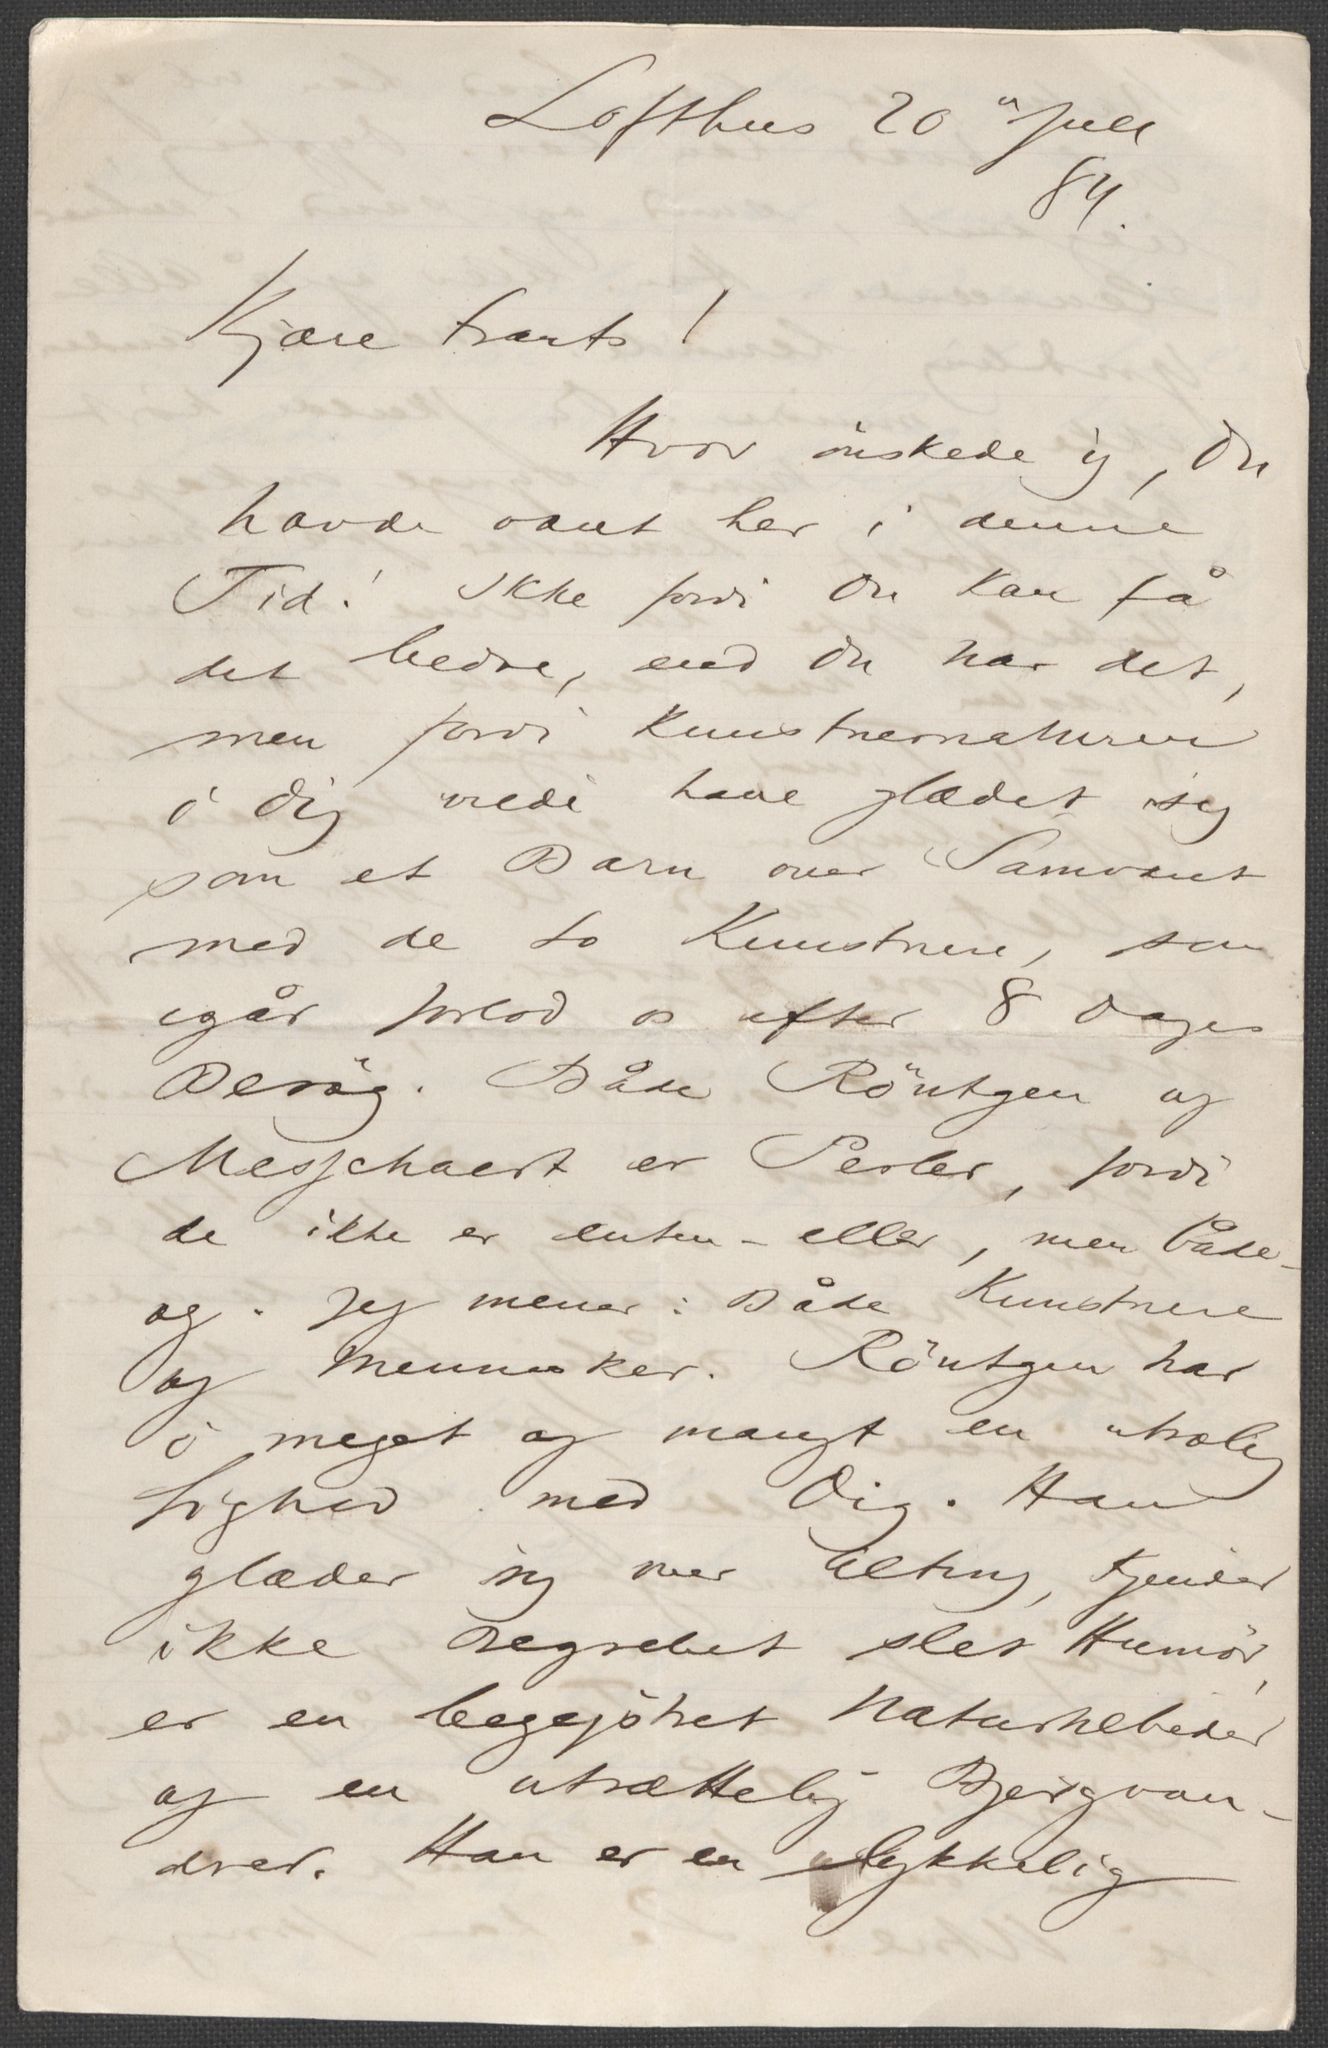 Lofthus 20 Juli
84.
Kjære Frants!
Hvor önskede jeg, Du
havde været her i denne
Tid! Ikke fordi Du kan få
det bedre, end Du har det,
men fordi Kunstnernaturen
i Dig vilde have glædet sig
som et Barn over Samværet
med de to Kunstnere, som
igår forlod os efter 8 Dages
Besög. Både Röntgen og
Messchaert er Perler, fordi
de ikke er enten-eller, men både-
og. Jeg mener: Både Kunstnere
og Mennesker. Röntgen har
i meget og mangt en utrolig
Lighed med Dig. Han
glæder sig over Alting, kjender
ikke Begrebet slet Humör,
er en begejstret Naturtilbeder
og en utrættelig Bjergvan-
drer. Han er en lykkelig